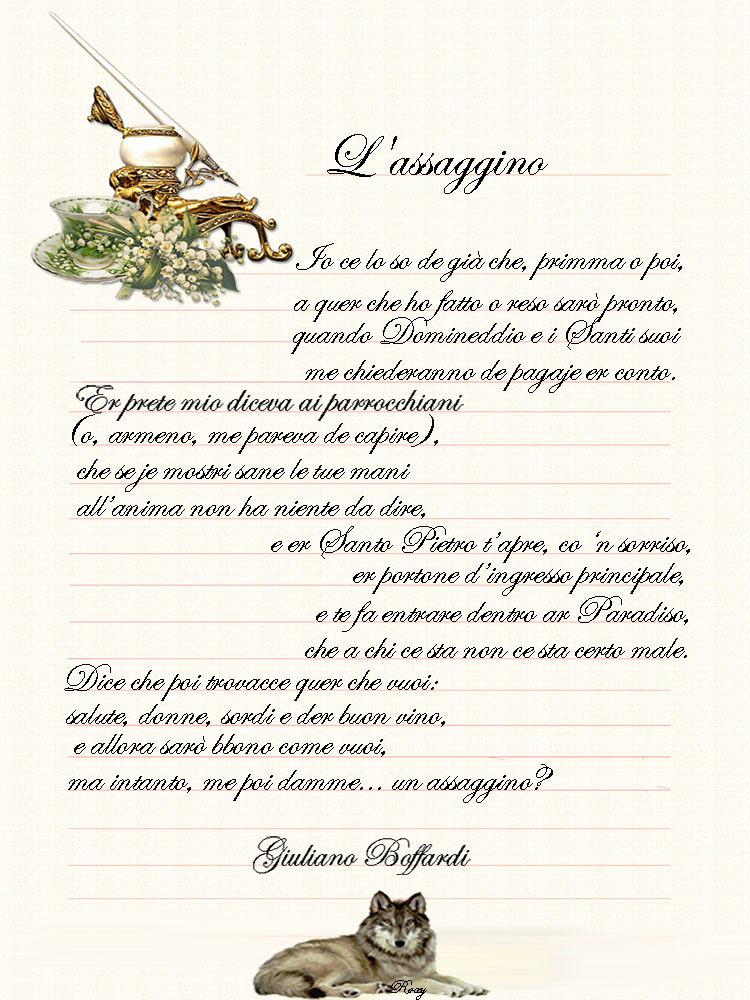 L'assaggino
Io ce lo so de già che, primma o poi,
a quer che ho fatto o reso sarò pronto,
quando Domineddio e i Santi suoi
me chiederanno de pagaje er conto.
Er prete mio diceva ai parrocchiani
(o, armeno, me pareva de capire),
che se je mostri sane le tue mani
all'anima non ha niente da dire,
e er Santo Pietro t'apre, co 'n sorriso,
er portone d'ingresso principale,
e te fa entrare dentro ar Paradiso,
che a chi ce sta non ce sta certo male.
Dice che poi trovacce quer che vuoi:
salute, donne, sordi e der buon vino,
e allora sarò bbono come vuoi,
ma intanto, me poi damme... un assaggino?
Giuliano Boffardi
Roxy